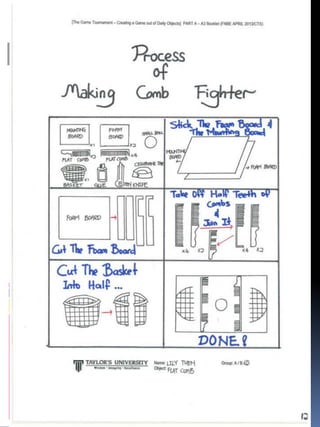 [The Game Tournament – Creating a Game out of Daily Objects] PART A – A3 Booklet (FNBE APRIL 2013/CTS)
Process
of
Making Comb Fighter
MOUNTING
BOARD
x1
FOAM
BOARD
x2
SMALL BALL
FLAT COMB x2
FLAT COMB x6
CELLOPHANE TAPE
BASKET x1
GLUE
PEN KNIFE
Stick The Foam Board &
The Mounting Board
MOUNTING
BOARD
FOAM BOARD
FOAM BOARD
Cut The Foam Board
Take Off Half Teeth of
Combs
&
Join It
x6 x2 x6 x2
Cut The Basket
Into Half ...
DONE!
TAYLOR'S UNIVERSITY
Wisdom · Integrity · Excellence
Name: LILY THEM
Object: FLAT COMB
Group: A / B
12